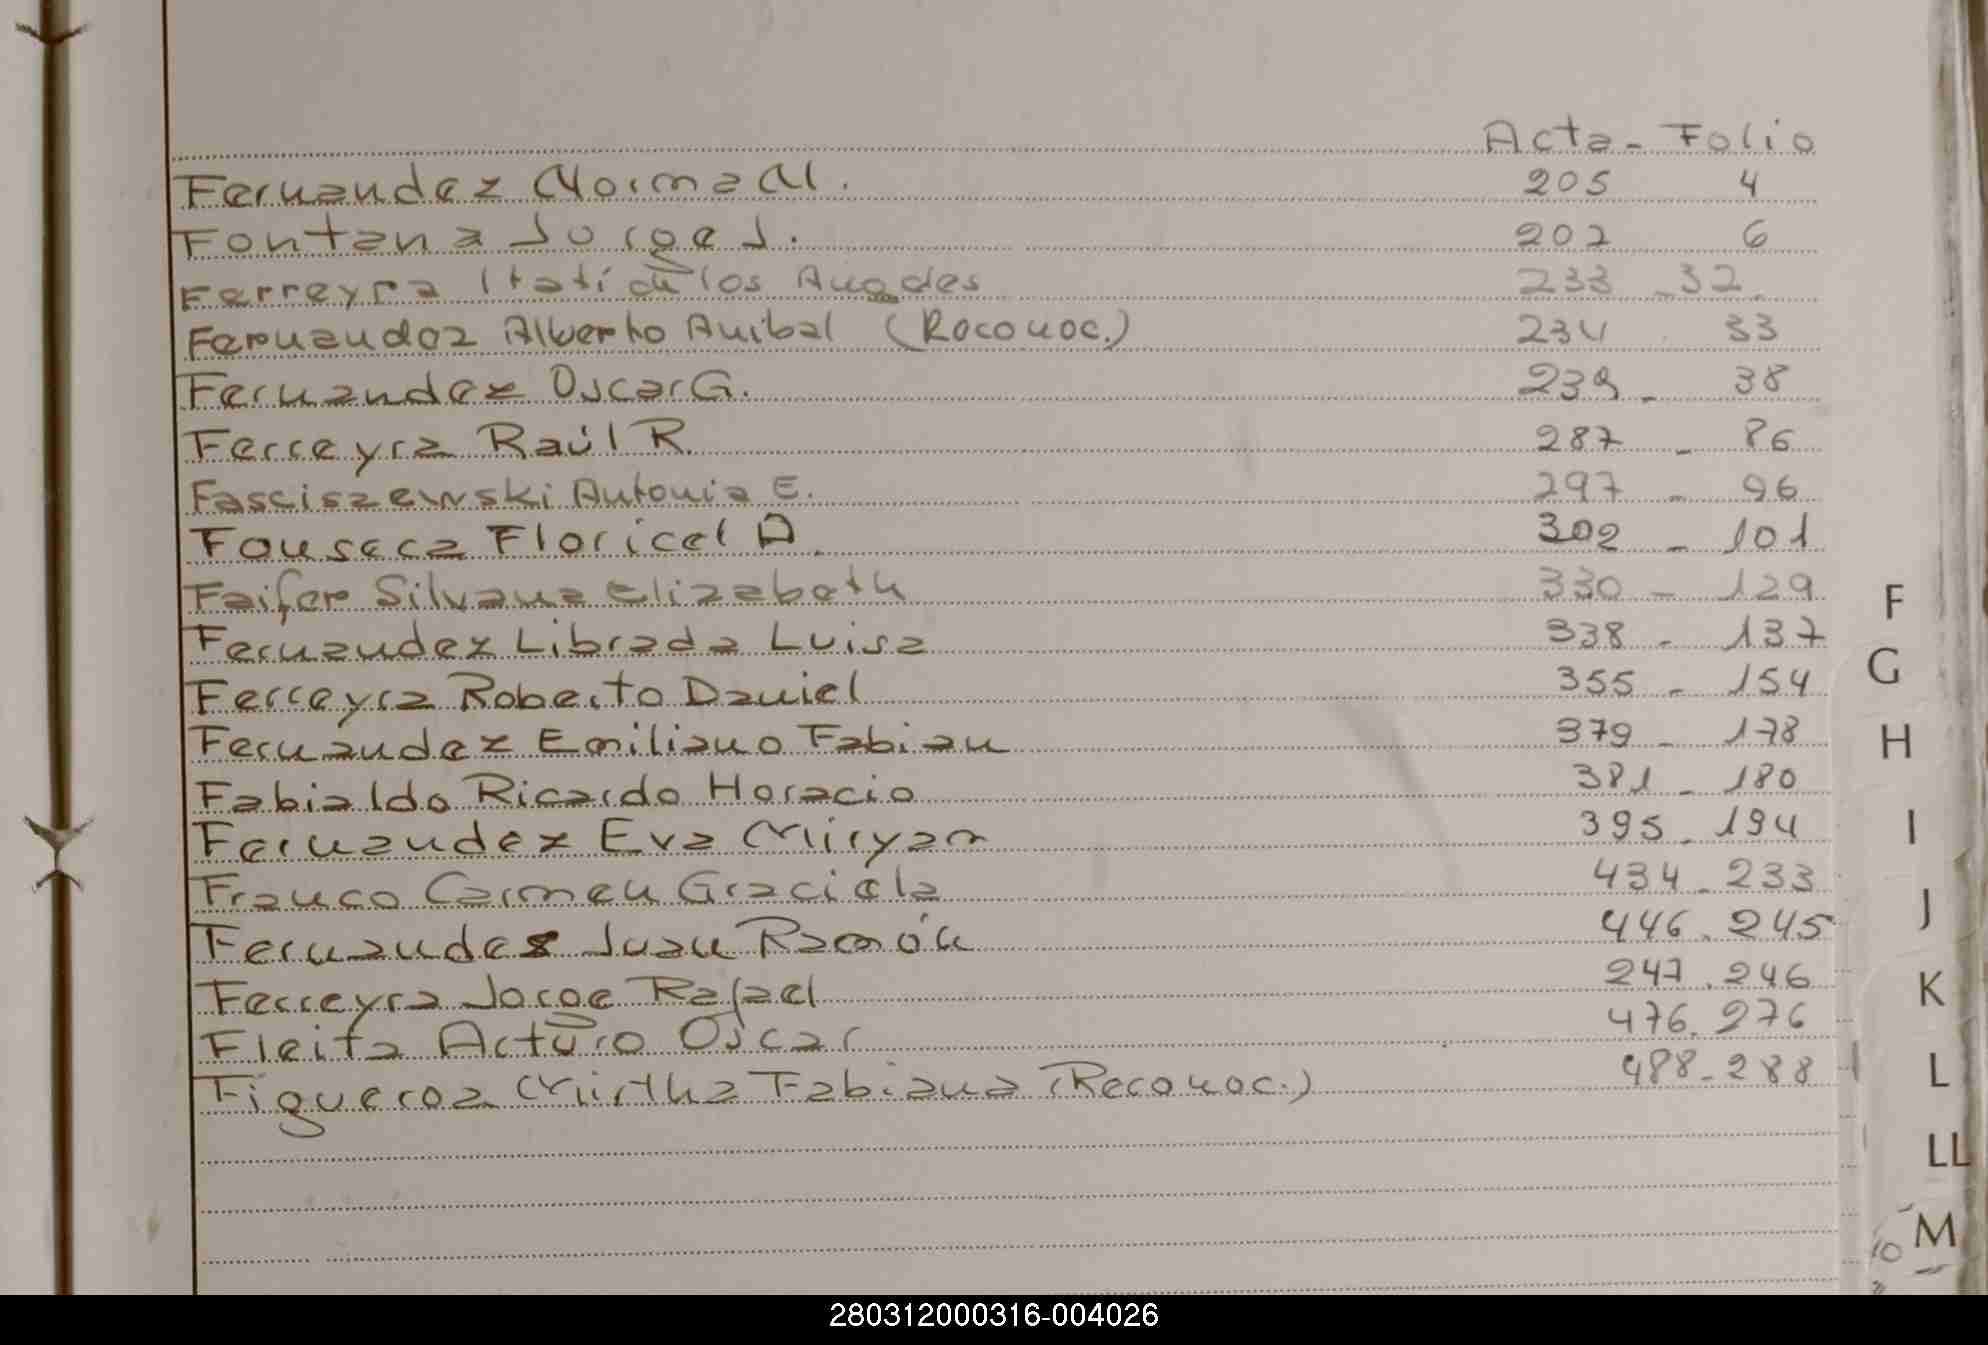 Acta - Folio
Fernandez Norma M. 205 4
Fontana Jorge J. 207 6
Ferreyra Itatí de los Angeles 233 - 32.
Fernandez Alberto Anibal (Reconoc.) 234 33
Fernandez Oscar G. 239 - 38
Ferreyra Raúl R. 287 - 86
Fasciszewski Antonia E. 297 - 96
Fonseca Floricel A. 302 - 101
Faifer Silvana Elizabeth 330 - 129
F
Fernandez Librada Luisa 338 - 137
G
Ferreyra Roberto Daniel 355 - 154
Fernandez Emiliano Fabian 379 - 178
H
Fabialdo Ricardo Horacio 381 - 180
Fernandez Eva Miryam 395 - 194
I
Franco Carmen Graciela 434 - 233
J
Fernandez Juan Ramón 446 . 245
Ferreyra Jorge Rafael 247 . 246
K
Fleita Arturo Oscar 476 . 276
Figueroa Mirtha Fabiana (Reconoc.) 488 - 288
L
LL
M
10
280312000316-004026